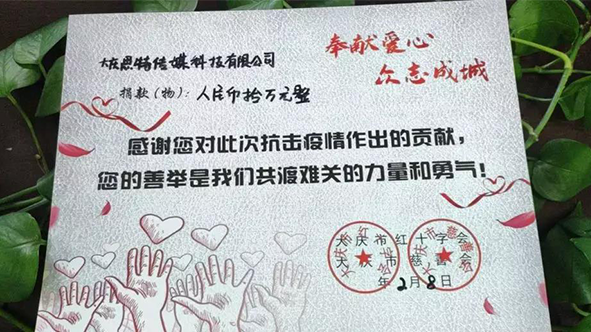 大庆思特传媒科技有限公司
奉献爱心
众志成城
捐款(物)：人民币拾万元整
感谢您对此次抗击疫情作出的贡献，
您的善举是我们共渡难关的力量和勇气！
大庆市红十字会
大庆市慈善会
年2月8日